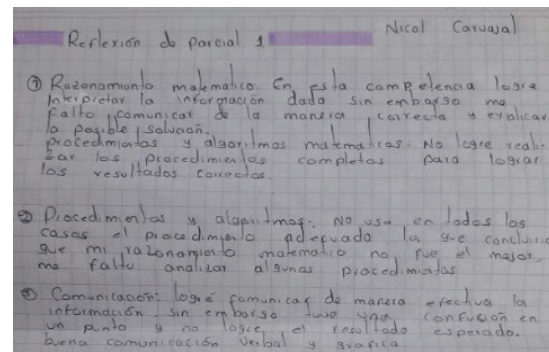 Nicol Carvajal
Reflexión do Parcial 1
① Razonamiento matematico. En esta competencia logre
Interpretar la información dada sin embargo me
falto comunicar de la manera correcta y explicar
la posible solución.
procedimientos y algoritmos matematicos: No logre reali-
zar los procedimientos completos para lograr
los resultados correctos.
② Procedimientos y algoritmos: No use en todos los
casos el procedimiento adecuado la que concluir
que mi razonamiento matematico no fue el mejor,
me falto analizar algunos procedimientos
③ Comunicación: logré comunicar de manera efectiva la
información sin embargo tuve una confusión en
un punto y no logre el resultado esperado.
buena comunicación verbal y grafica.